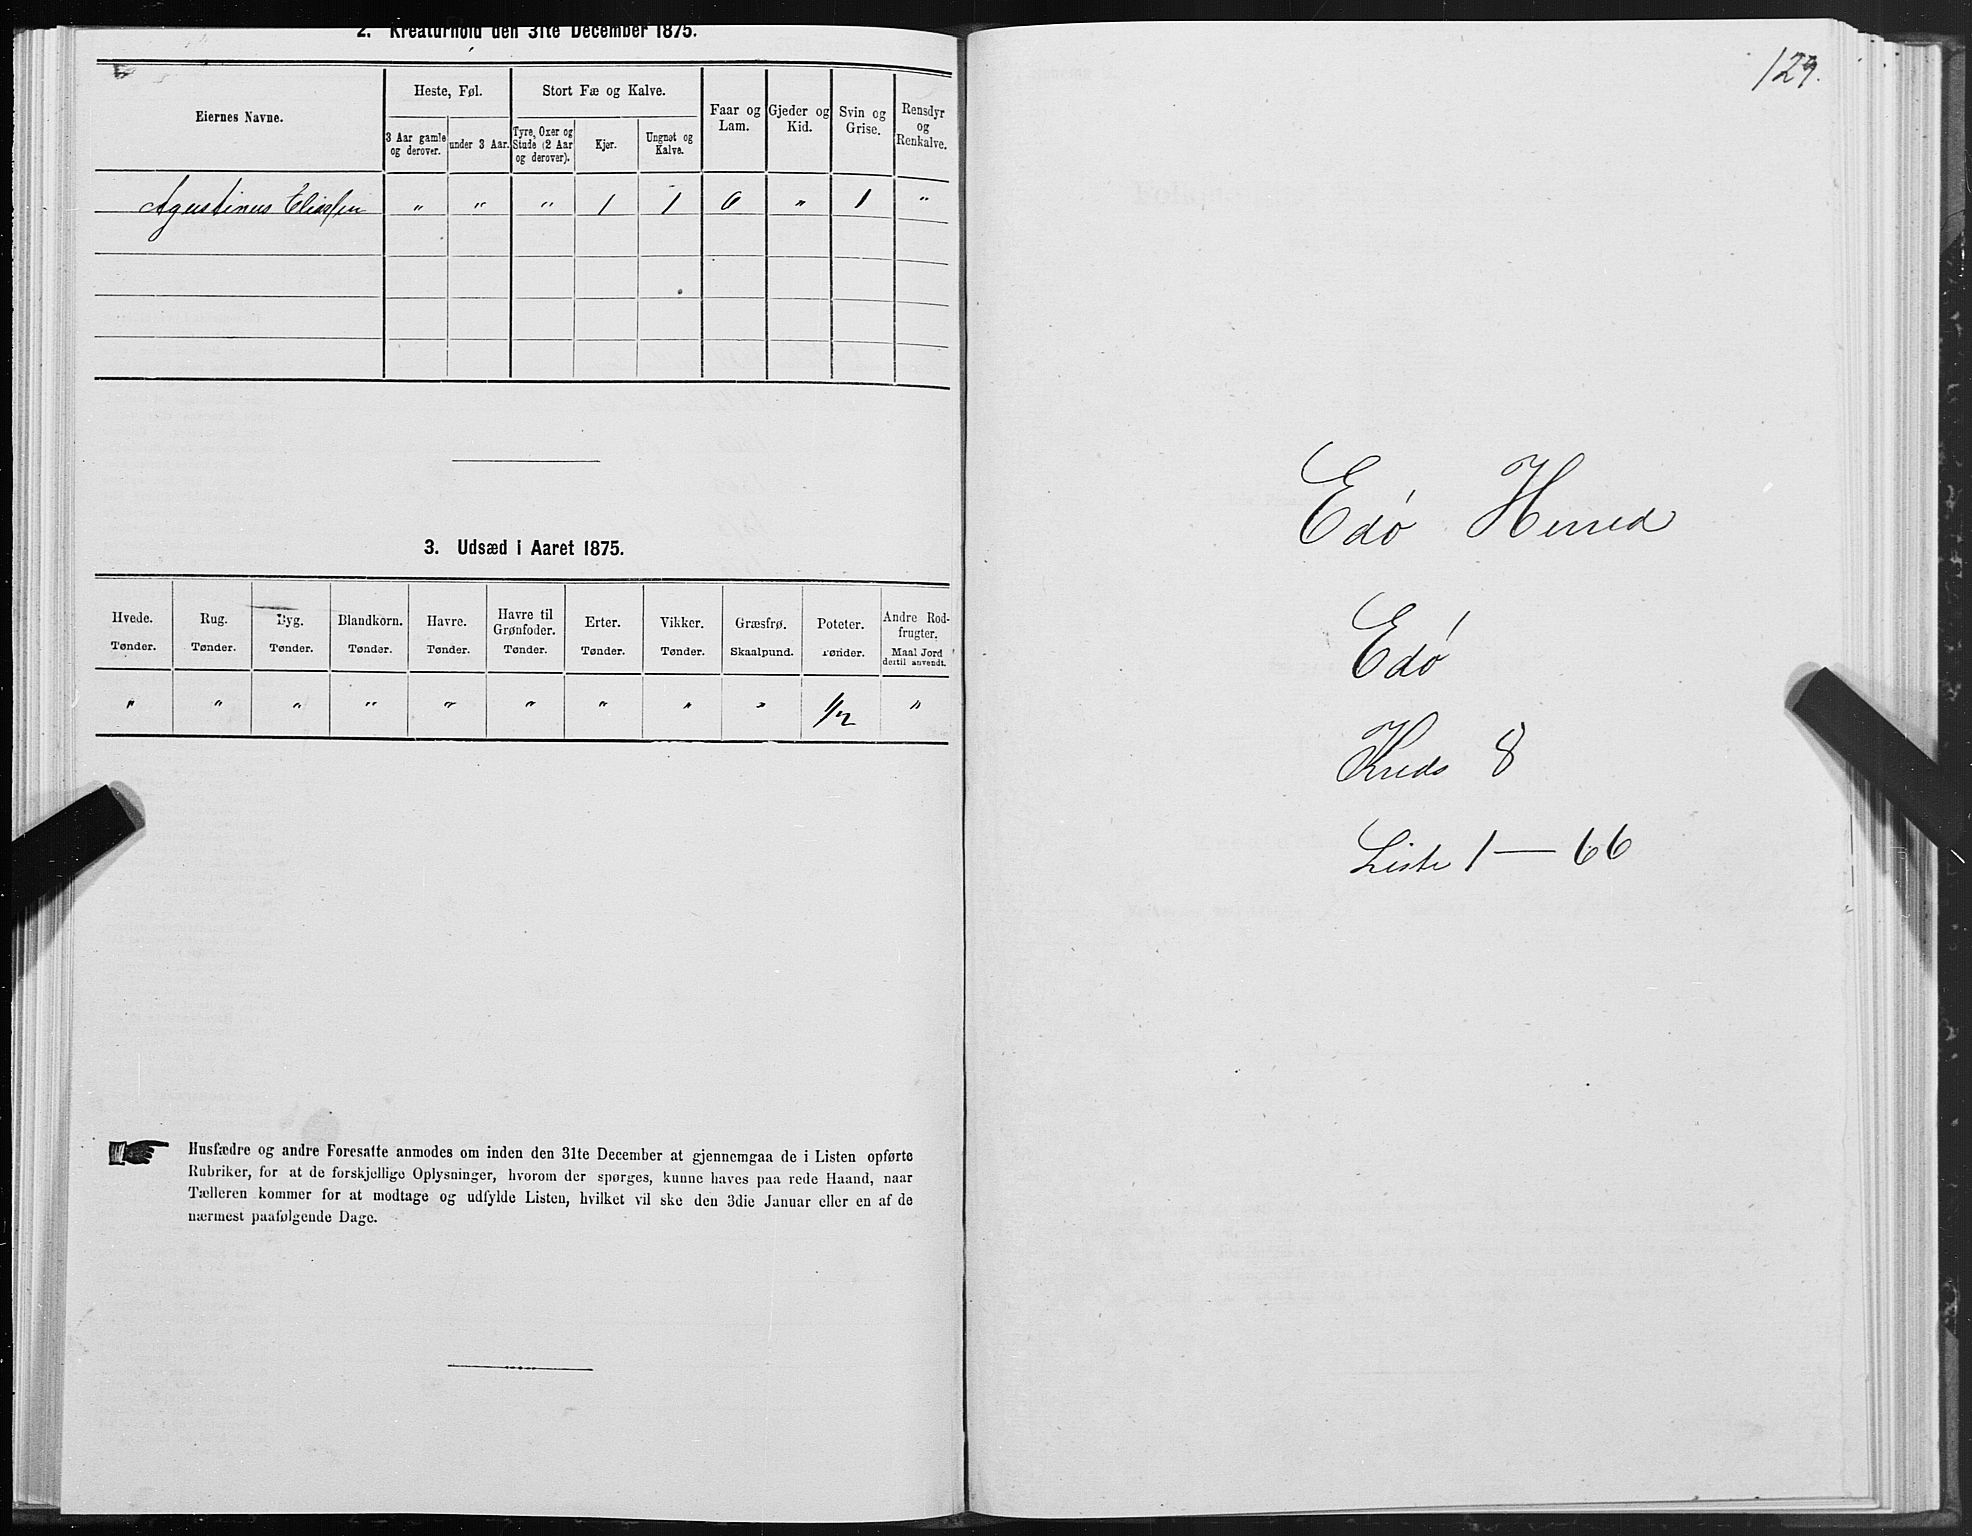 2. Kreaturhold den 31te December 1875.
Eiernes Navne.
Heste, Føl.
Stort Fæ og Kalve.
Faar og Lam.
Gjeder og Kid.
Svin og Grise.
Rensdyr og Renkalve.
3 Aar gamle og derover.
under 3 Aar.
Tyre, Oxer og Stude (2 Aar og derover).
Kjør.
Ungnøt og Kalve.
Agustinus Eliassen " " " 1 1 6 " 1 "
3. Udsæd i Aaret 1875.
Hvede. Rug. Byg. Blandkorn. Havre. Havre til Grønfoder. Erter. Vikker. Græsfrø. Poteter. Andre Rodfrugter.
Tønder. Tønder. Tønder. Tønder. Tønder. Tønder. Tønder. Tønder. Skaalpund. Tønder. Maal Jord dertil anvendt.
" " " " " " " " " 1/2 "
Husfædre og andre Foresatte anmodes om inden den 31te December at gjennemgaa de i Listen opførte
Rubriker, for at de forskjellige Oplysninger, hvorom der spørges, kunne haves paa rede Haand, naar
Tælleren kommer for at modtage og udfylde Listen, hvilket vil ske den 3die Januar eller en af de
nærmest paafølgende Dage.
129.
Edø Herred
Edø
Kreds 8
Liste 1 — 66